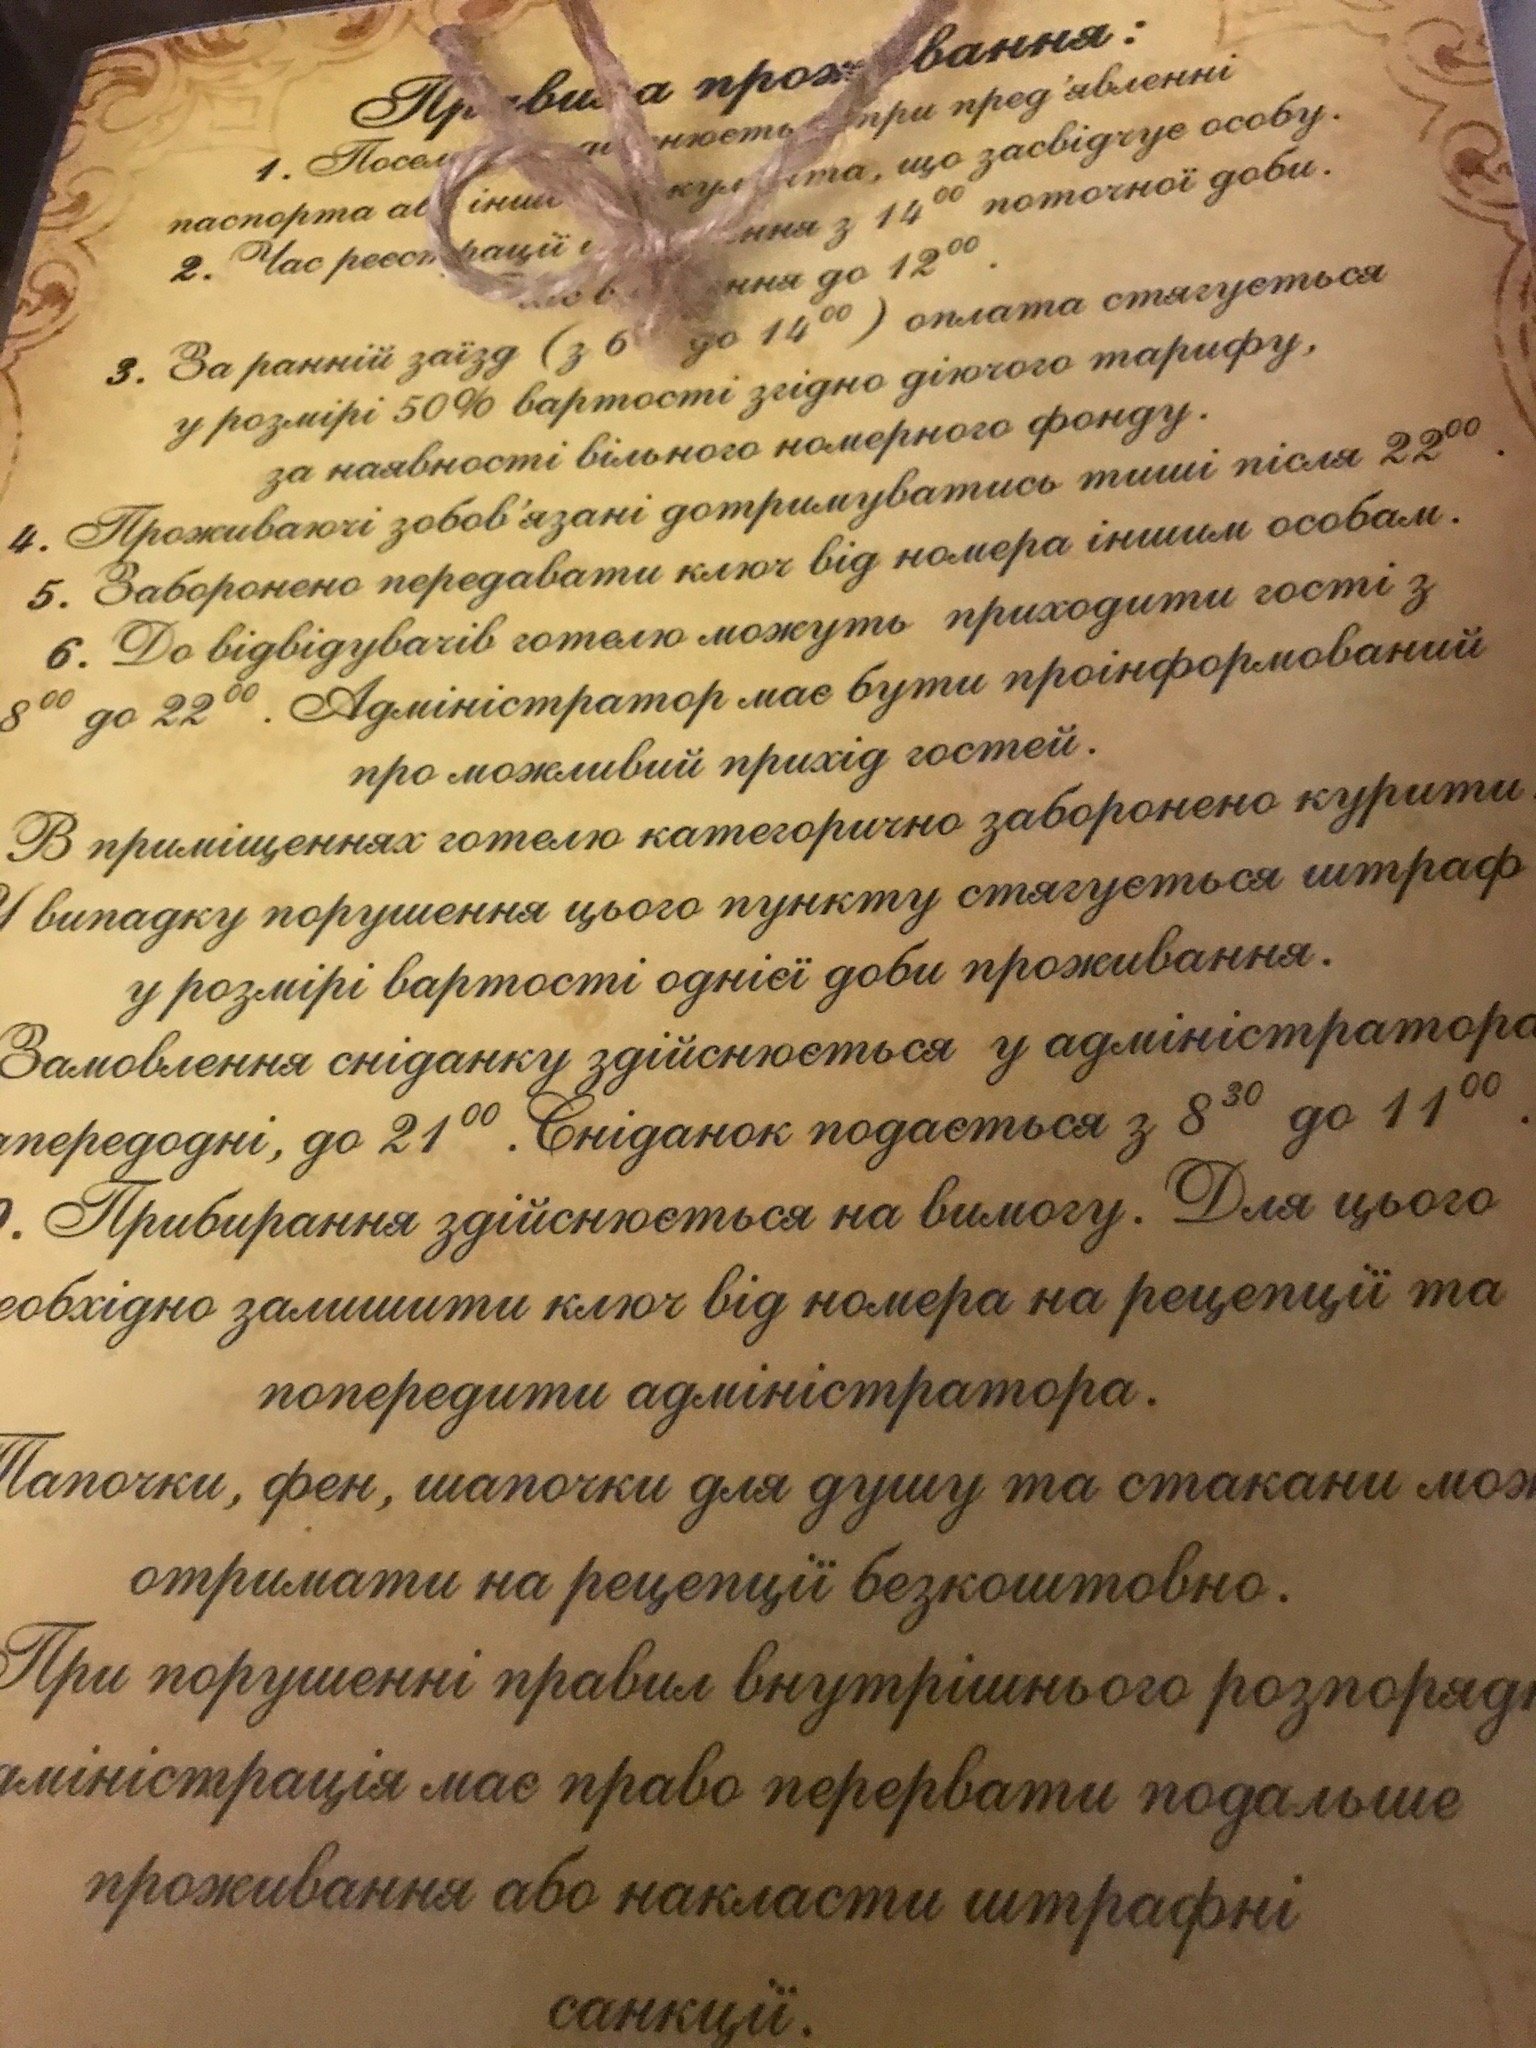 Правила проживання:
1. при пред'явленні
паспорта що засвідчує особу.
2. Час реєстрації з 14⁰⁰ поточної доби.
до 12⁰⁰.
3. За ранній заїзд (з 6 до 14⁰⁰) оплата стягується
у розмірі 50% вартості згідно діючого тарифу,
за наявності вільного номерного фонду.
4. Проживаючі зобов'язані дотримуватись тиші після 22⁰⁰.
5. Заборонено передавати ключ від номера іншим особам.
6. До відвідувачів готелю можуть приходити гості з
8⁰⁰ до 22⁰⁰. Адміністратор має бути проінформований
про можливий прихід гостей.
В приміщеннях готелю категорично заборонено курити.
У випадку порушення цього пункту стягується штраф
у розмірі вартості однієї доби проживання.
Замовлення сніданку здійснюється у адміністратора
апередодні, до 21⁰⁰. Сніданок подається з 8³⁰ до 11⁰⁰.
. Прибирання здійснюється на вимогу. Для цього
еобхідно залишити ключ від номера на рецепції та
попередити адміністратора.
Тапочки, фен, шапочки для душу та стакани мож
отримати на рецепції безкоштовно.
При порушенні правил внутрішнього розпоряд
дміністрація має право перервати подальше
проживання або накласти штрафні
санкції.